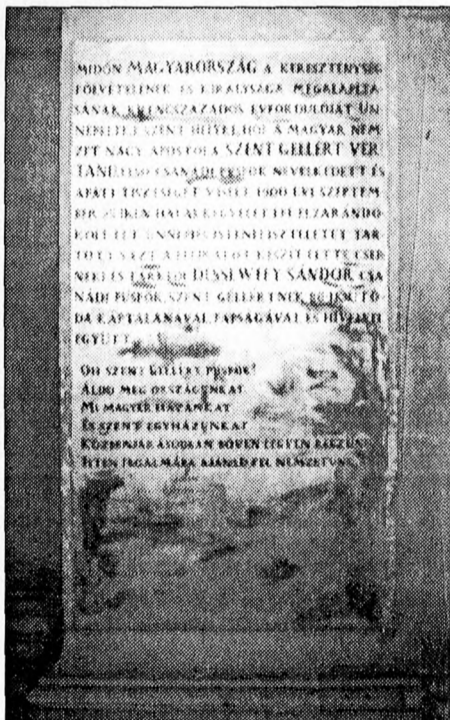 MIDŐN MAGYARORSZÁG A KERESZTÉNYSÉG
FÖLVÉTELÉNEK ÉS KIRÁLYSÁGA MEGALAPÍTÁ
SÁNAK KILENCSZÁZADOS ÉVFORDULÓJÁT ÜN
SZENT HELYEN, HOL A MAGYAR NEM
ZET NAGY APOSTOLA SZENT GELLÉRT VÉR
TANÚ, ELSŐ CSANÁDI PÜSPÖK NEVELKEDETT ÉS
APÁTI TISZTSÉGET VISELT 1900 ÉVI SZEPTEM
BER ELZARÁNDO
ISTENITISZTELETET TAR
TOTT KÉSZÍTTETTE CSER
NEKI ÉS TARKEŐI DESSEWFFY SÁNDOR CSA
NÁDI PÜSPÖK, SZENT GELLÉRTNEK UTÓ
DA KÁPTALANÁVAL, PAPSÁGÁVAL ÉS HÍVEIVEL
EGYÜTT.
OH SZENT GELLÉRT PÜSPÖK!
ÁLDD MEG ORSZÁGUNKAT
MI MAGYAR HAZÁNKAT
ÉS SZENT EGYHÁZUNKAT
KÖZBENJÁRÁSODBAN BŐVEN LEGYEN RÉSZÜNK
ISTEN IRGALMÁBA AJÁNLD FEL NEMZETÜNK